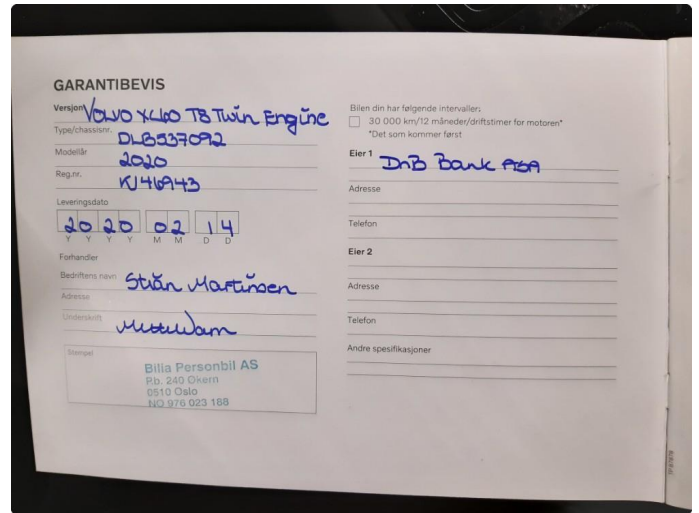 GARANTIBEVIS
Versjon Volvo XC60 T8 Twin Engine
Type/chassisnr. DLB537092
Modellår 2020
Reg.nr.
Leveringsdato
2020 02 14
Y Y Y Y M M D D
Forhandler
Bedriftens navn Stian Martinsen
Adresse
Underskrift
Stempel
Bilia Personbil AS
P.b. 240 Økern
0510 Oslo
NO 976 023 188
Bilen din har følgende intervaller:
30 000 km/12 måneder/driftstimer for motoren*
*Det som kommer først
Eier 1 DnB Bank ASA
Adresse
Telefon
Eier 2
Adresse
Telefon
Andre spesifikasjoner